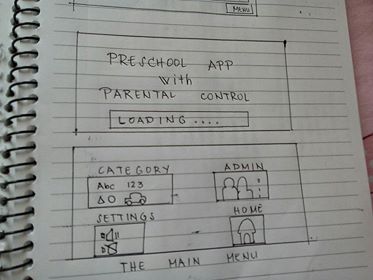 MENU
PRESCHOOL APP
with
PARENTAL CONTROL
LOADING ....
CATEGORY ADMIN
Abc 123
SETTINGS HOME
THE MAIN MENU